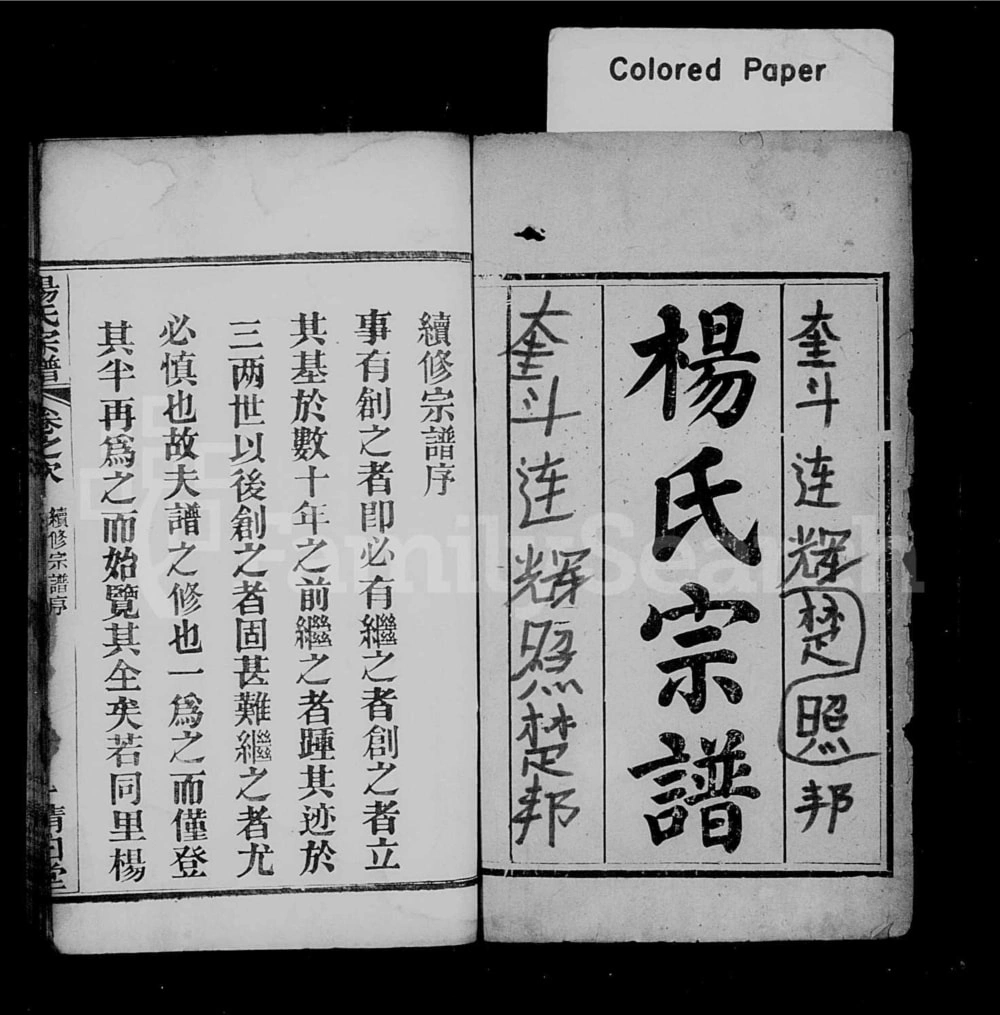 Colored Paper
奎斗连辉楚照邦
楊氏宗譜
奎斗连辉照楚邦
續修宗譜序
事有創之者即必有繼之者創之者立
其基於數十年之前繼之者踵其迹於
三两世以後創之者固甚難繼之者尤
必慎也故夫譜之修也一爲之而僅登
其半再爲之而始覽其全矣若同里楊
楊氏宗譜
卷之次
續修宗譜序
FamilySearch